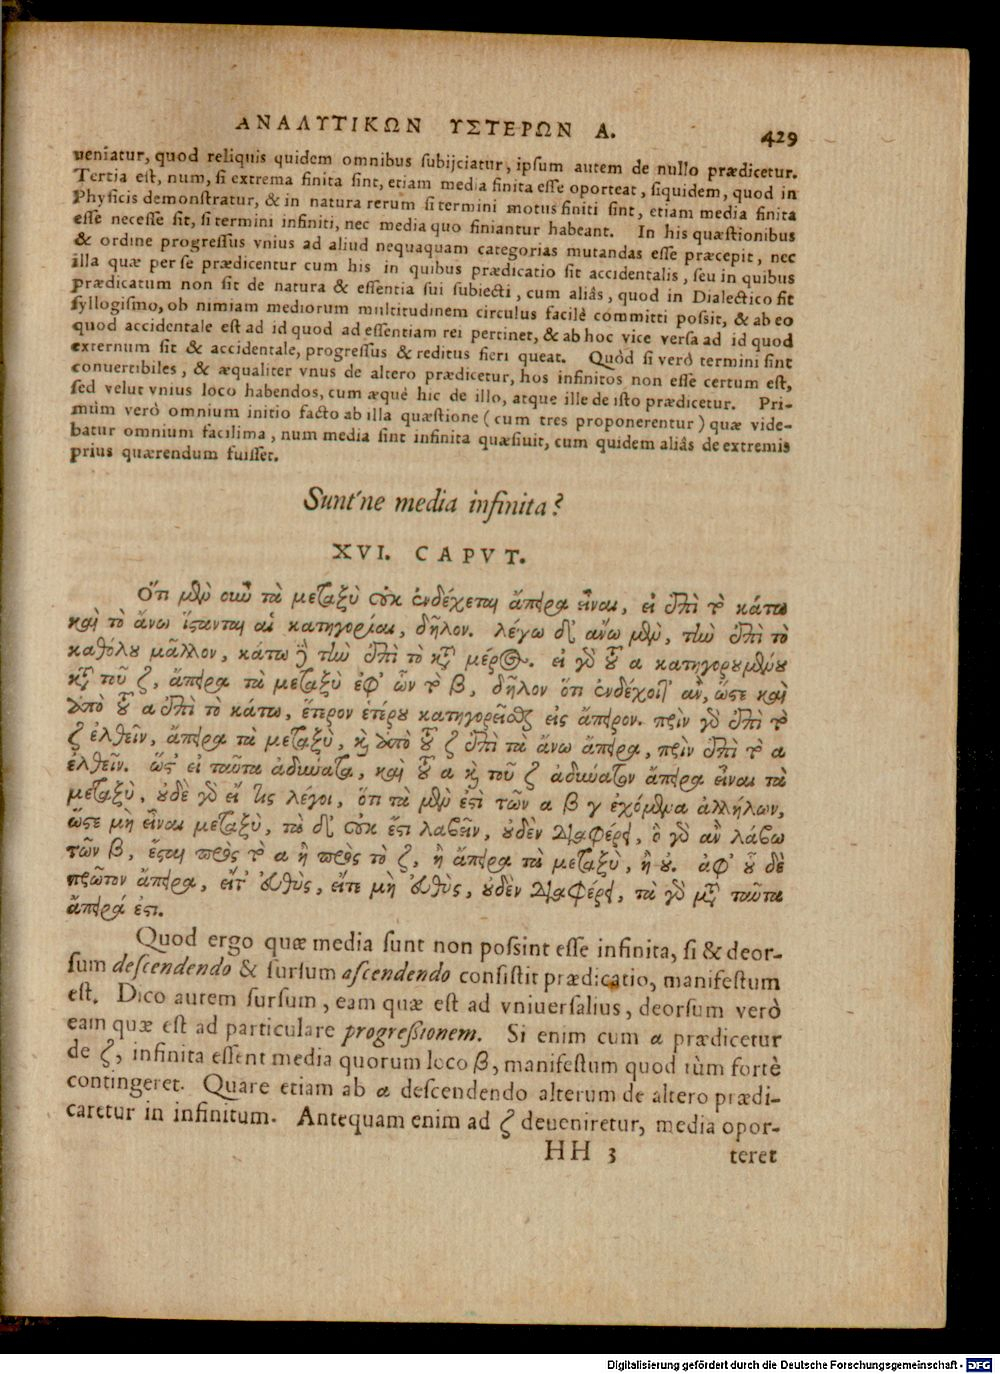 ΑΝΑΛΥΤΙΚΩΝ ΥΣΤΕΡΩΝ Α. 429
ueniatur, quod reliquis quidem omnibus subijciatur, ipsum autem de nullo prædicetur.
Tertia est, num, si extrema finita sint, etiam media finita esse oporteat, siquidem, quod in
Physicis demonstratur, & in natura rerum si termini motus finiti sint, etiam media finita
esse necesse sit, si termini infiniti, nec media quo finiantur habeant. In his quæstionibus
& ordine progressus vnius ad aliud nequaquam categorias mutandas esse præcepit, nec
illa quæ per se prædicentur cum his in quibus prædicatio sit accidentalis, seu in quibus
prædicatum non sit de natura & essentia sui subiecti, cum aliâs, quod in Dialectico fit
syllogismo, ob nimiam mediorum multitudinem circulus facilè committi possit, & ab eo
quod accidentale est ad id quod ad essentiam rei pertinet, & ab hoc vice versa ad id quod
externum sit & accidentale, progressus & reditus fieri queat. Quòd si verò termini sint
conuertibiles, & æqualiter vnus de altero prædicetur, hos infinitos non esse certum est,
sed velut vnius loco habendos, cum æquè hic de illo, atque ille de isto prædicetur. Pri-
mùm verò omnium initio facto ab illa quæstione (cum tres proponerentur) quæ vide-
batur omnium facilima, num media sint infinita quæsiuit, cum quidem aliâs de extremis
prius quærendum fuisset.
Sunt'ne media infinita?
XVI. CAPVT.
Ὅτι μὲν οὖν τὰ μεταξὺ οὐκ ἐνδέχεται ἄπειρα εἶναι, εἰ ἐπὶ τὸ κάτω
καὶ τὸ ἄνω ἵστανται αἱ κατηγορίαι, δῆλον. λέγω δ' ἄνω μὲν, τὴν ἐπὶ τὸ
καθόλου μᾶλλον, κάτω δὲ τὴν ἐπὶ τὸ κατὰ μέρος. εἰ γὰρ τοῦ α κατηγορουμένου
κατὰ τοῦ ζ, ἄπειρα τὰ μεταξὺ ἐφ' ὧν τὸ β, δῆλον ὅτι ἐνδέχοιτ' ἂν, ὥστε καὶ
ἀπὸ τοῦ α ἐπὶ τὸ κάτω, ἕτερον ἑτέρου κατηγορεῖσθαι εἰς ἄπειρον. πρὶν γὰρ ἐπὶ τὸ
ζ ἐλθεῖν, ἄπειρα τὰ μεταξὺ, καὶ ἀπὸ τοῦ ζ ἐπὶ τὰ ἄνω ἄπειρα, πρὶν ἐπὶ τὸ α
ἐλθεῖν. ὥστ' εἰ ταῦτα ἀδύνατα, καὶ τοῦ α καὶ τοῦ ζ ἀδύνατον ἄπειρα εἶναι τὰ
μεταξὺ, οὐδὲ γὰρ εἴ τις λέγοι, ὅτι τὰ μὲν ἐστὶ τῶν α β γ ἐχόμενα ἀλλήλων,
ὥστε μὴ εἶναι μεταξὺ, τὰ δ' οὐκ ἔστι λαβεῖν, οὐδὲν διαφέρει, ὃ γὰρ ἂν λάβω
τῶν β, ἔσται πρὸς τὸ α ἢ πρὸς τὸ ζ, ἢ ἄπειρα τὰ μεταξὺ, ἢ οὔ. ἀφ' οὗ δὲ
πρῶτον ἄπειρα, εἴτ' εὐθὺς, εἴτε μὴ εὐθὺς, οὐδὲν διαφέρει, τὰ γὰρ μετὰ ταῦτα
ἄπειρά ἐστι.
Quod ergo quæ media sunt non possint esse infinita, si & deor-
sum descendendo & sursum ascendendo consistit prædicatio, manifestum
est. Dico autem sursum, eam quæ est ad vniuersalius, deorsum verò
eam quæ est ad particulare progressionem. Si enim cum α prædicetur
de ζ, infinita essent media quorum loco β, manifestum quod tùm fortè
contingeret. Quare etiam ab α descendendo alterum de altero prædi-
caretur in infinitum. Antequam enim ad ζ deueniretur, media opor-
HH 3 teret
Digitalisierung gefördert durch die Deutsche Forschungsgemeinschaft - DFG